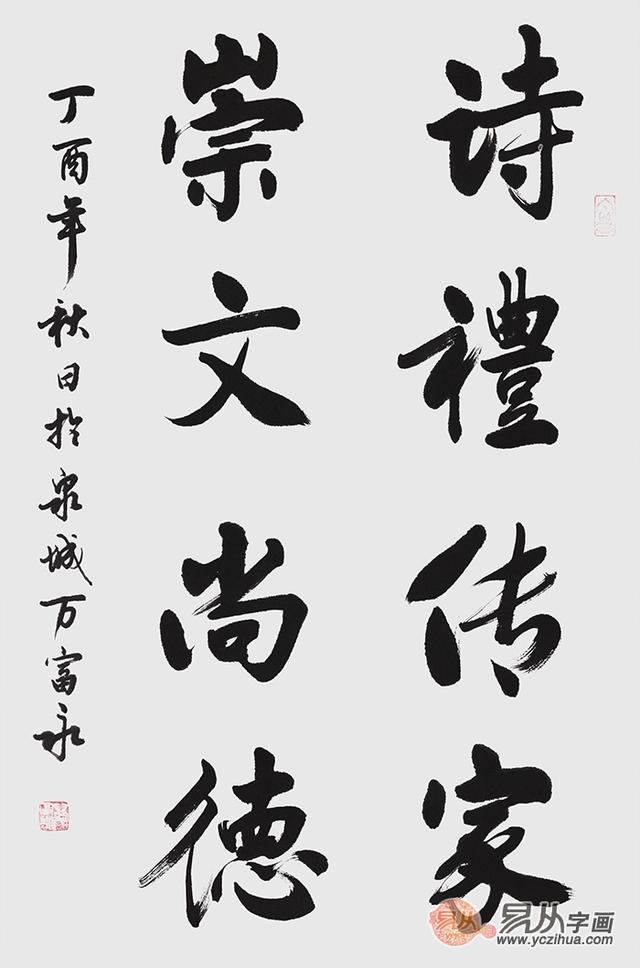 诗禮传家
崇文尚德
丁酉年秋日於泉城万富永
易从字画
www.yczihua.com